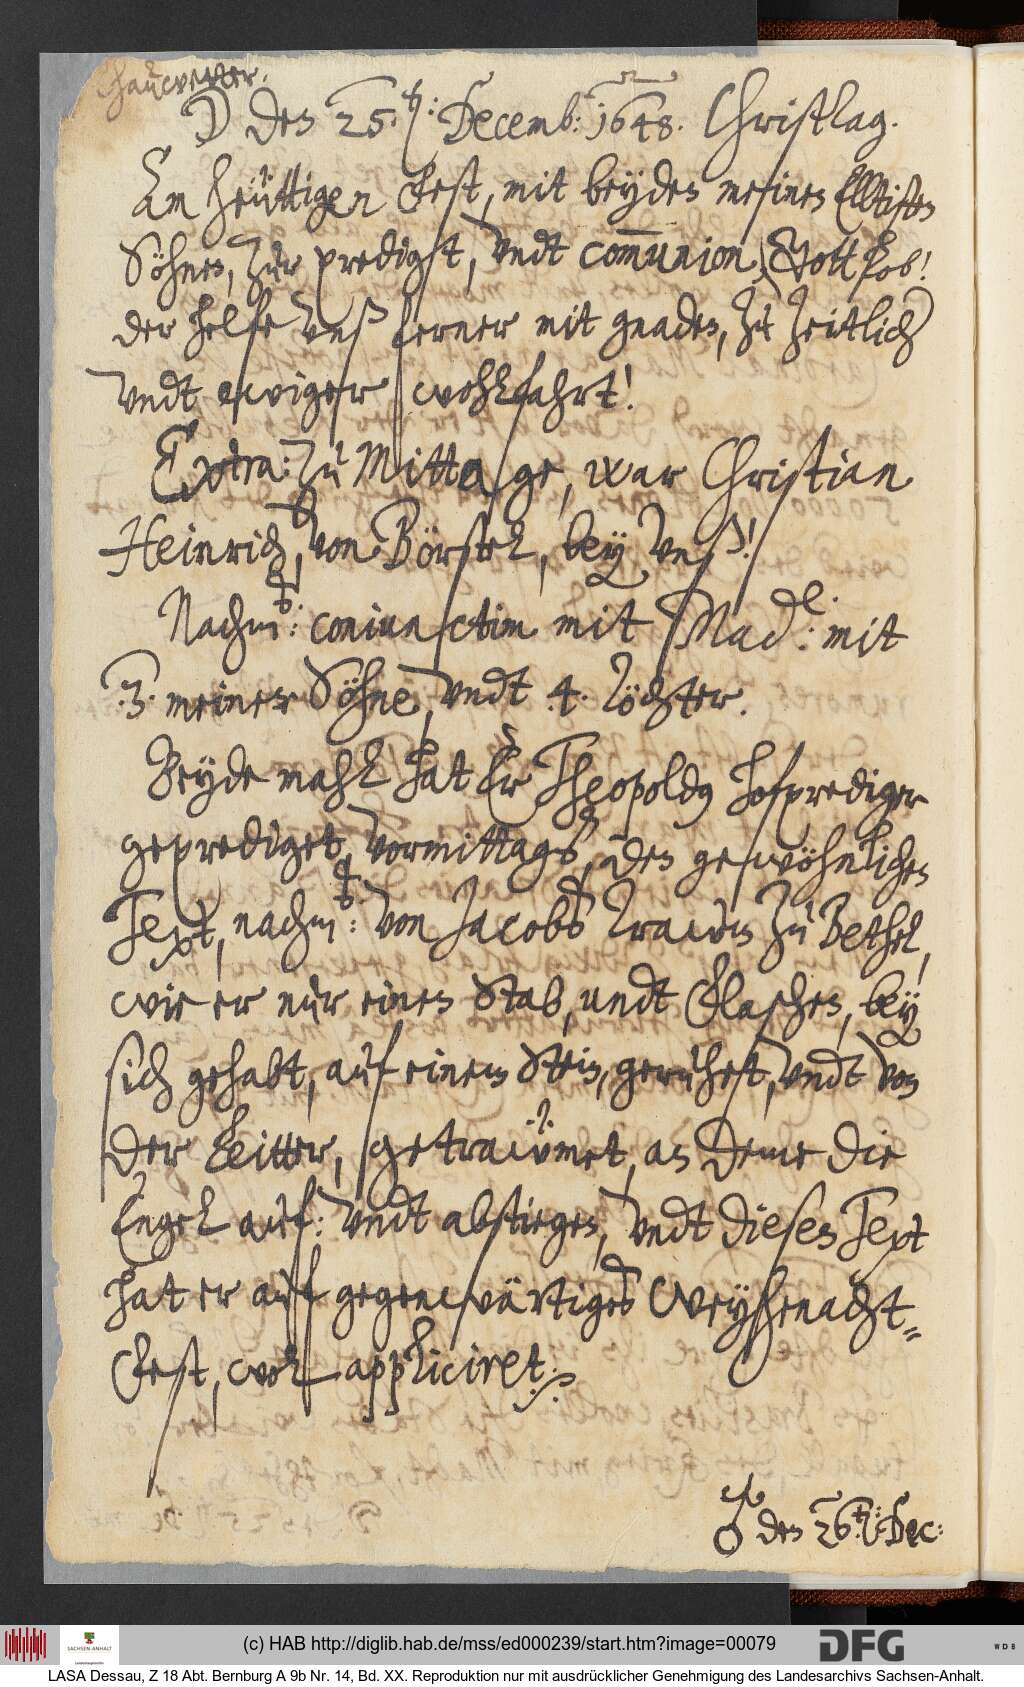 Thauwetter.
☽ den 25.ten: Decemb: 1648. Christtag.
Am heüttigen Fest, mit beyden meinen Elltisten
Söhnen, zur predigt, vndt communion, Gott lob!
der helfe vnß ferner mit gnaden, zu zeitlich
vndt ewiger wohlfahrt!
Extra: zu Mittage, war Christian
Heinrich, von Börstel, bey vnß!
Nachmits: coniunctim mit Madle: mit
3. meiner Söhne, vndt 4. Töchter.
Beyde mahl hat Er Theopoldus hofprediger
geprediget, vormittags, den gewöhnlichen
Text, nachmits: von Jacobs Traum zu Bethel,
wie er nur einen Stab, undt Flaschen, bey
sich gehabt, auf einem Stein, geruhet, vndt von
der Leitter, getraümet, an deme die
Engel auf: vndt abstiegen, vndt diesen Text
hat er auf gegenwärtiges Weyhenacht-
Fest, wol appliciret.
♂ den 26.ten: Dec:
(c) HAB http://diglib.hab.de/mss/ed000239/start.htm?image=00079
SACHSEN-ANHALT
DFG
WDB
LASA Dessau, Z 18 Abt. Bernburg A 9b Nr. 14, Bd. XX. Reproduktion nur mit ausdrücklicher Genehmigung des Landesarchivs Sachsen-Anhalt.